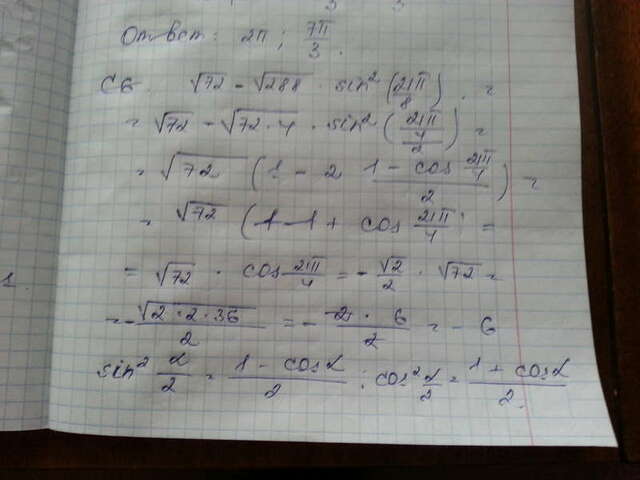 Ответ: 2π; 7π/3.
C6. √72 - √288 · sin²(21π/8) =
= √72 - √72·4 · sin²((21π/4)/2) =
= √72 (1 - 2 (1 - cos 21π/4)/2) =
= √72 (1 - 1 + cos 21π/4) =
= √72 · cos 21π/4 = - √2/2 · √72 =
= - √2·2·36/2 = - 2·6/2 = - 6
sin² α/2 = (1 - cos α)/2 ; cos² α/2 = (1 + cos α)/2.